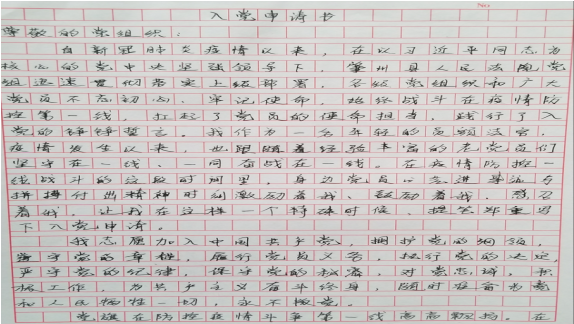 No
入党申请书
尊敬的党组织：
自新冠肺炎疫情以来，在以习近平同志为
核心的党中央坚强领导下，肇州县人民法院党
组迅速贯彻落实上级部署，各级党组织和广大
党员不忘初心、牢记使命，始终战斗在疫情防
控第一线，扛起了党员的使命担当，践行了入
党的铮铮誓言。我作为一名年轻的员额法官，
疫情发生以来，也跟随着经验丰富的老党员们
坚守在一线、一同奋战在一线。在疫情防控一
线战斗的这段时间里，身边党员以先进
拼搏付出精神时刻激励着我、鼓励着我、感召
着我，让我在这样一个特殊时候，提笔郑重写
下入党申请。
我志愿加入中国共产党，拥护党的纲领，
遵守党的章程，履行党员义务，执行党的决定，
严守党的纪律，保守党的秘密，对党忠诚，积
极工作，为共产主义奋斗终身，随时准备为党
和人民牺牲一切，永不叛党。
党旗在防控疫情斗争第一线高高飘扬。在